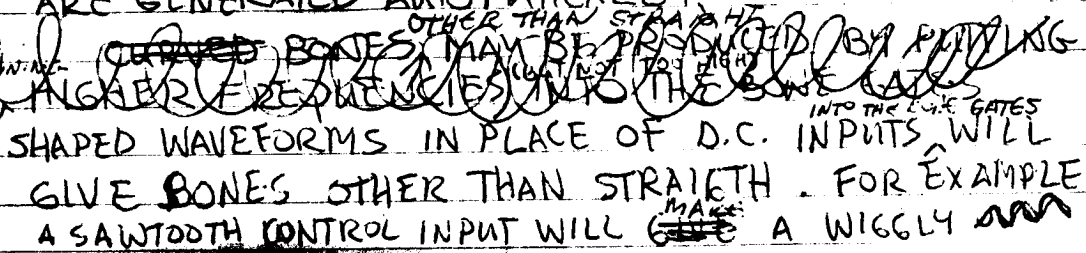 ARE GENERATED
OTHER THAN STRAIGHT
CURVED BONES, MAY BE PRODUCED BY PUTTING
(BUT NOT TOO HIGH)
HIGHER FREQUENCIES INTO THE BONE GATES
INTO THE GATES
SHAPED WAVEFORMS IN PLACE OF D.C. INPUTS ^ WILL
GIVE BONES OTHER THAN STRAIGTH. FOR EXAMPLE
MAKE
A SAWTOOTH CONTROL INPUT WILL GIVE A WIGGLY